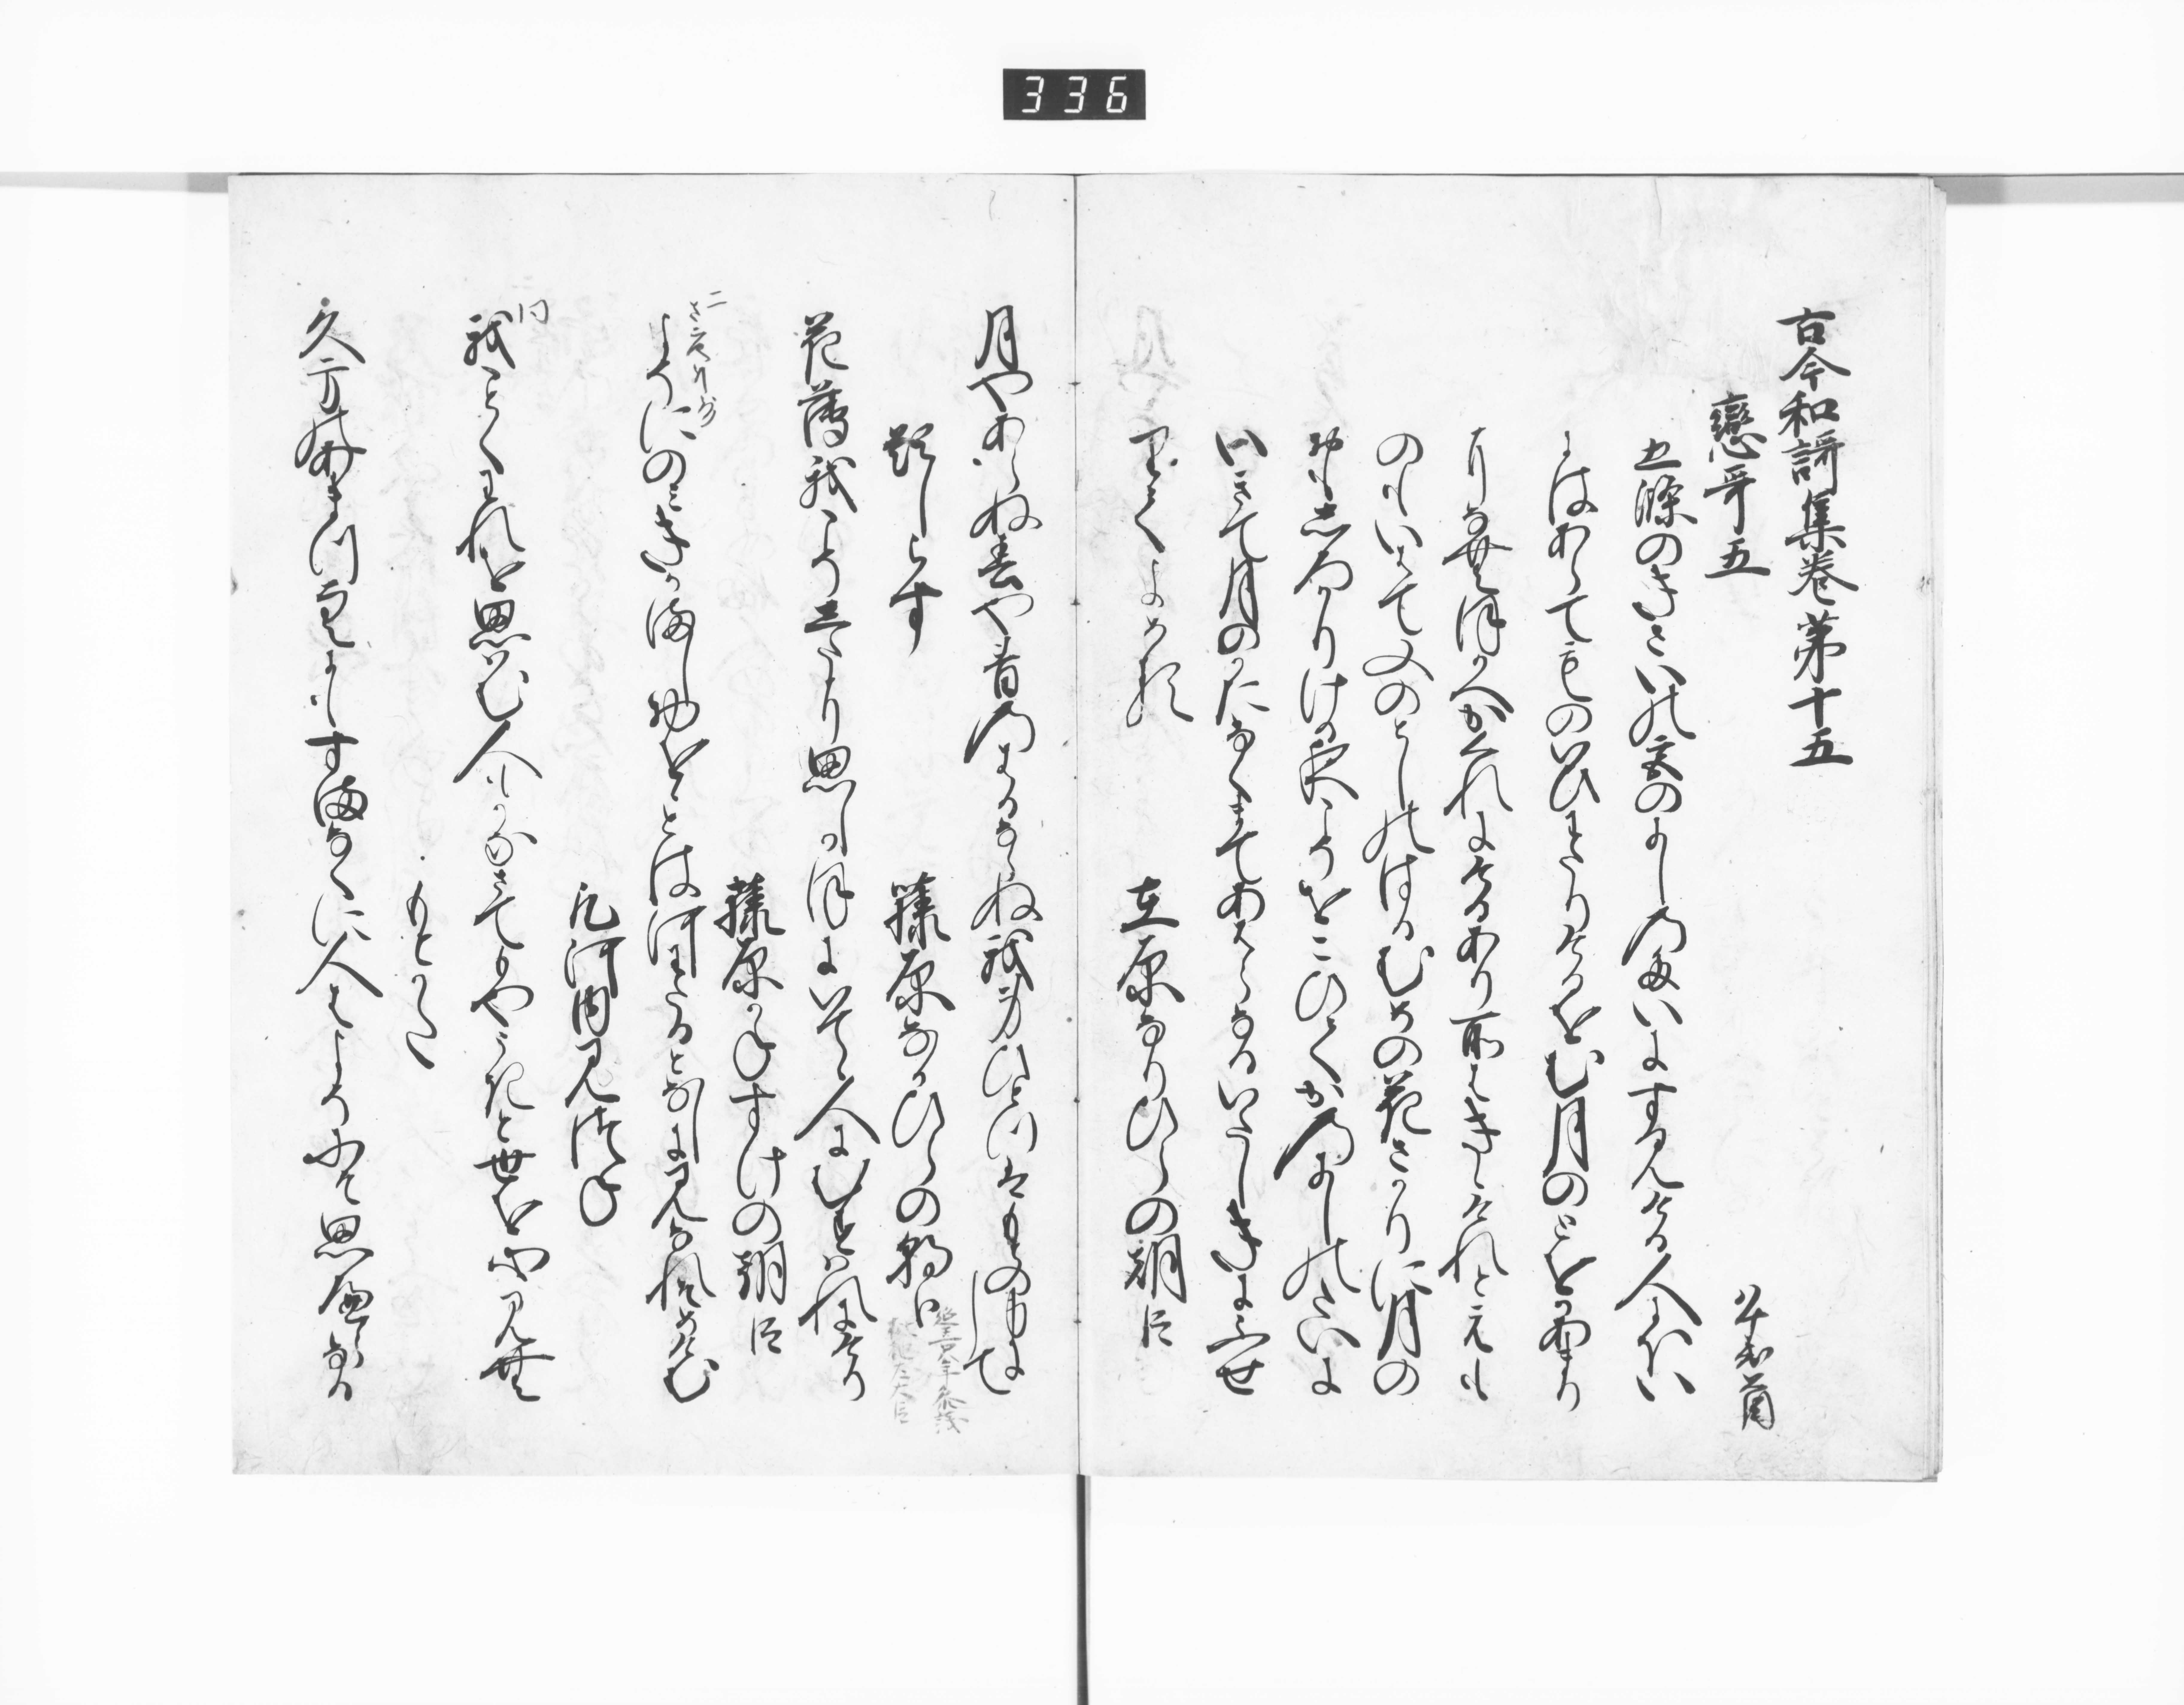 336
古今和謌集巻第十五
戀哥五
八十二首
五條のきさいの宮のにしのたいにすみける人にほい
にはあらてものいひわたりけるをむ月のとをかあまり
になむほかへかくれにけるあり所はきゝけれとえも
のもいはて又のとしのはるむめの花さかりに月の
おもしろかりける夜こそをこひてかのにしのたいに
いきて月のかたふくまてあはらなるいたしきにふせ
りてよめる
在原なりひらの朝臣
月やあらぬ春や昔のはるならぬ我身ひとつはもとの身にして
題しらす
藤原なかひらの朝臣
延喜八年参議
枇杷左大臣
花薄我こそしたに思しかほにいてゝ人にむすはれにけり
藤原かねすけの朝臣
二
よそにのみきかまし物をとは河わたるとなしに見なれそめけむ
凡河内みつね
同
我ことくわれを思はむ人もかなさてもやうきと世を心見む
もとかた
久方のあまつそらにもすまなくに人はよそにそ思へらなる